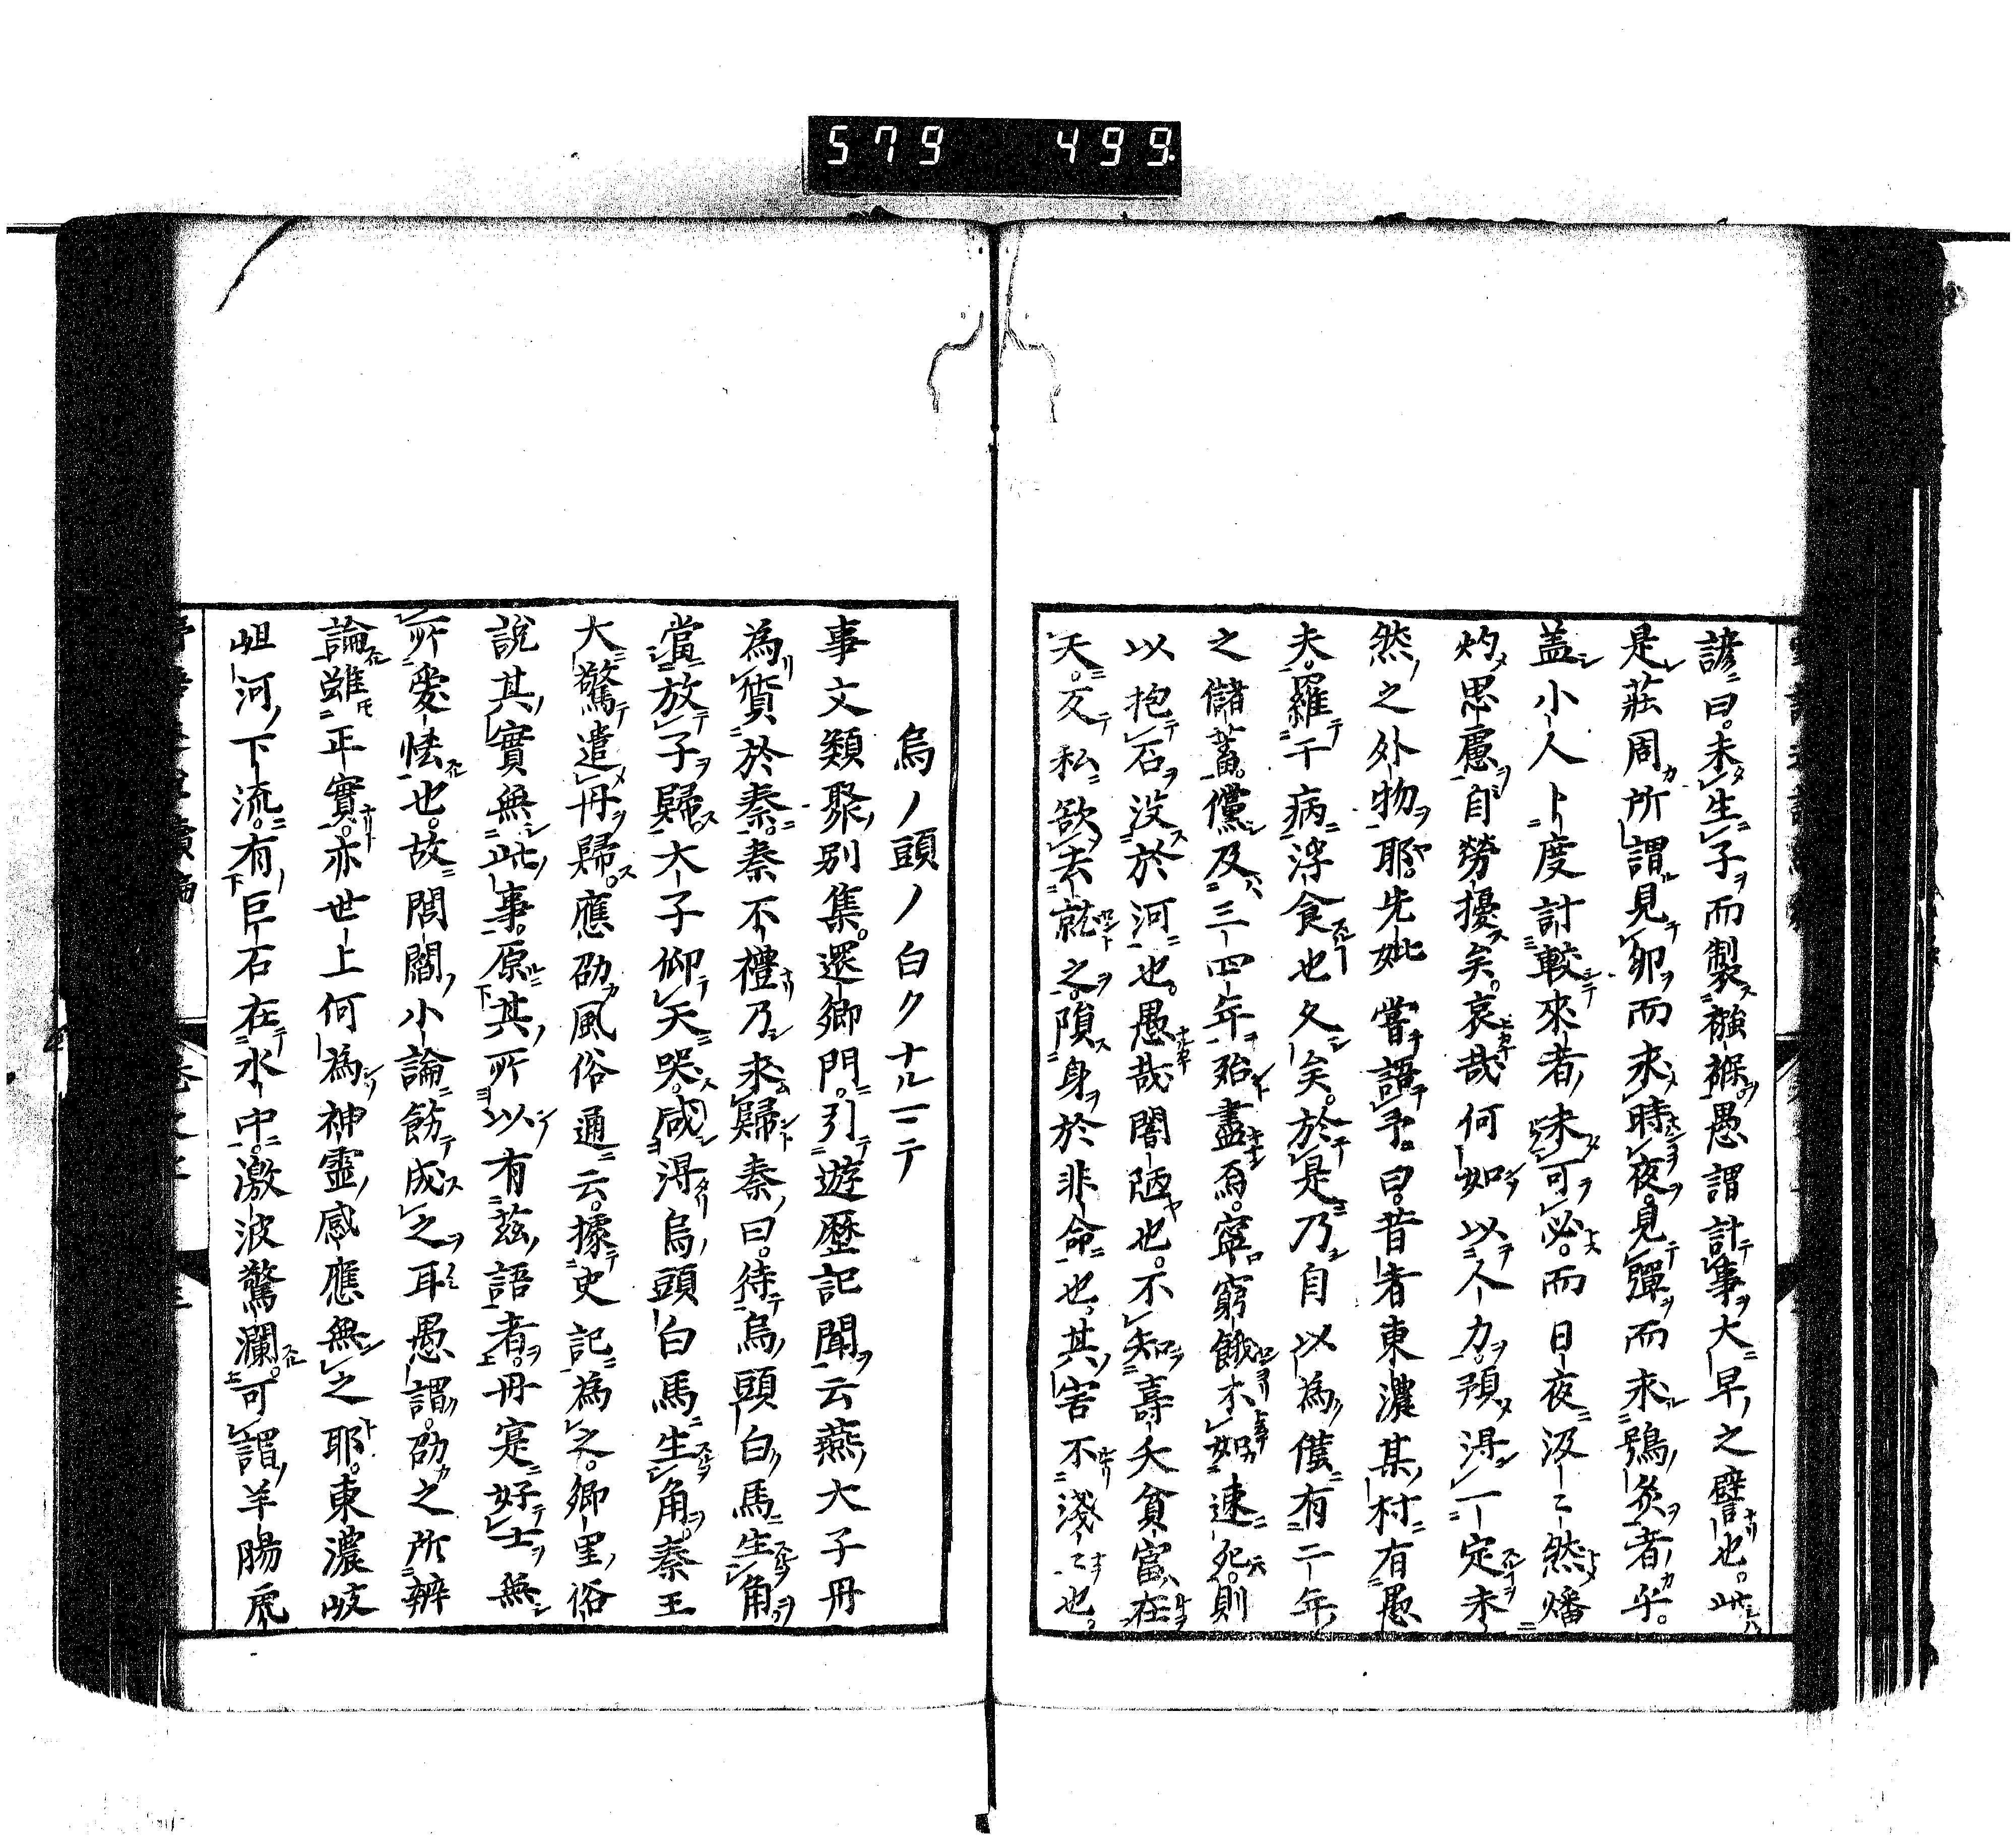 579 499
諺曰。未生子而製襁褓。愚謂計事大早之譬也。此
是莊周所謂見卵而求時夜。見彈而求鴞炙者乎。
蓋小人卜度計較來者。未可必。而日夜汲〻然燔
灼思慮自勞擾矣。哀哉何如以人力。預得一定未
然之外物耶。先妣嘗語予曰。昔者東濃某村有愚
夫。羅干病浮食也久矣。於是乃自以為僅有二年
之儲蓄。儻及三四年。殆盡焉。寧窮餓不如速死。則
以抱石沒於河也。愚哉闇陋也。不知壽夭貧富在
天。反私欲去就之。隕身於非命也。其害不淺〻也。
烏ノ頭ノ白ク ナル一テ
事文類聚別集。還鄉門。引遊歷記聞云燕大子丹
為質於秦。秦不禮乃求歸秦曰。待烏頭白馬生角
當放子歸。太子仰天哭。感得烏頭白馬生角。秦王
大驚遣丹歸。應劭風俗通云。據史記為之。鄉里俗
說其實無此事。原其所以有茲語者。丹寔好士無
所愛恡也。故閭閻小論飭成之耳愚謂。劭之所辨
論雖正實。亦世上何為神靈感應無之耶。東濃岐
岨河下流。有巨石在水中。激波驚瀾。可謂羊腸虎